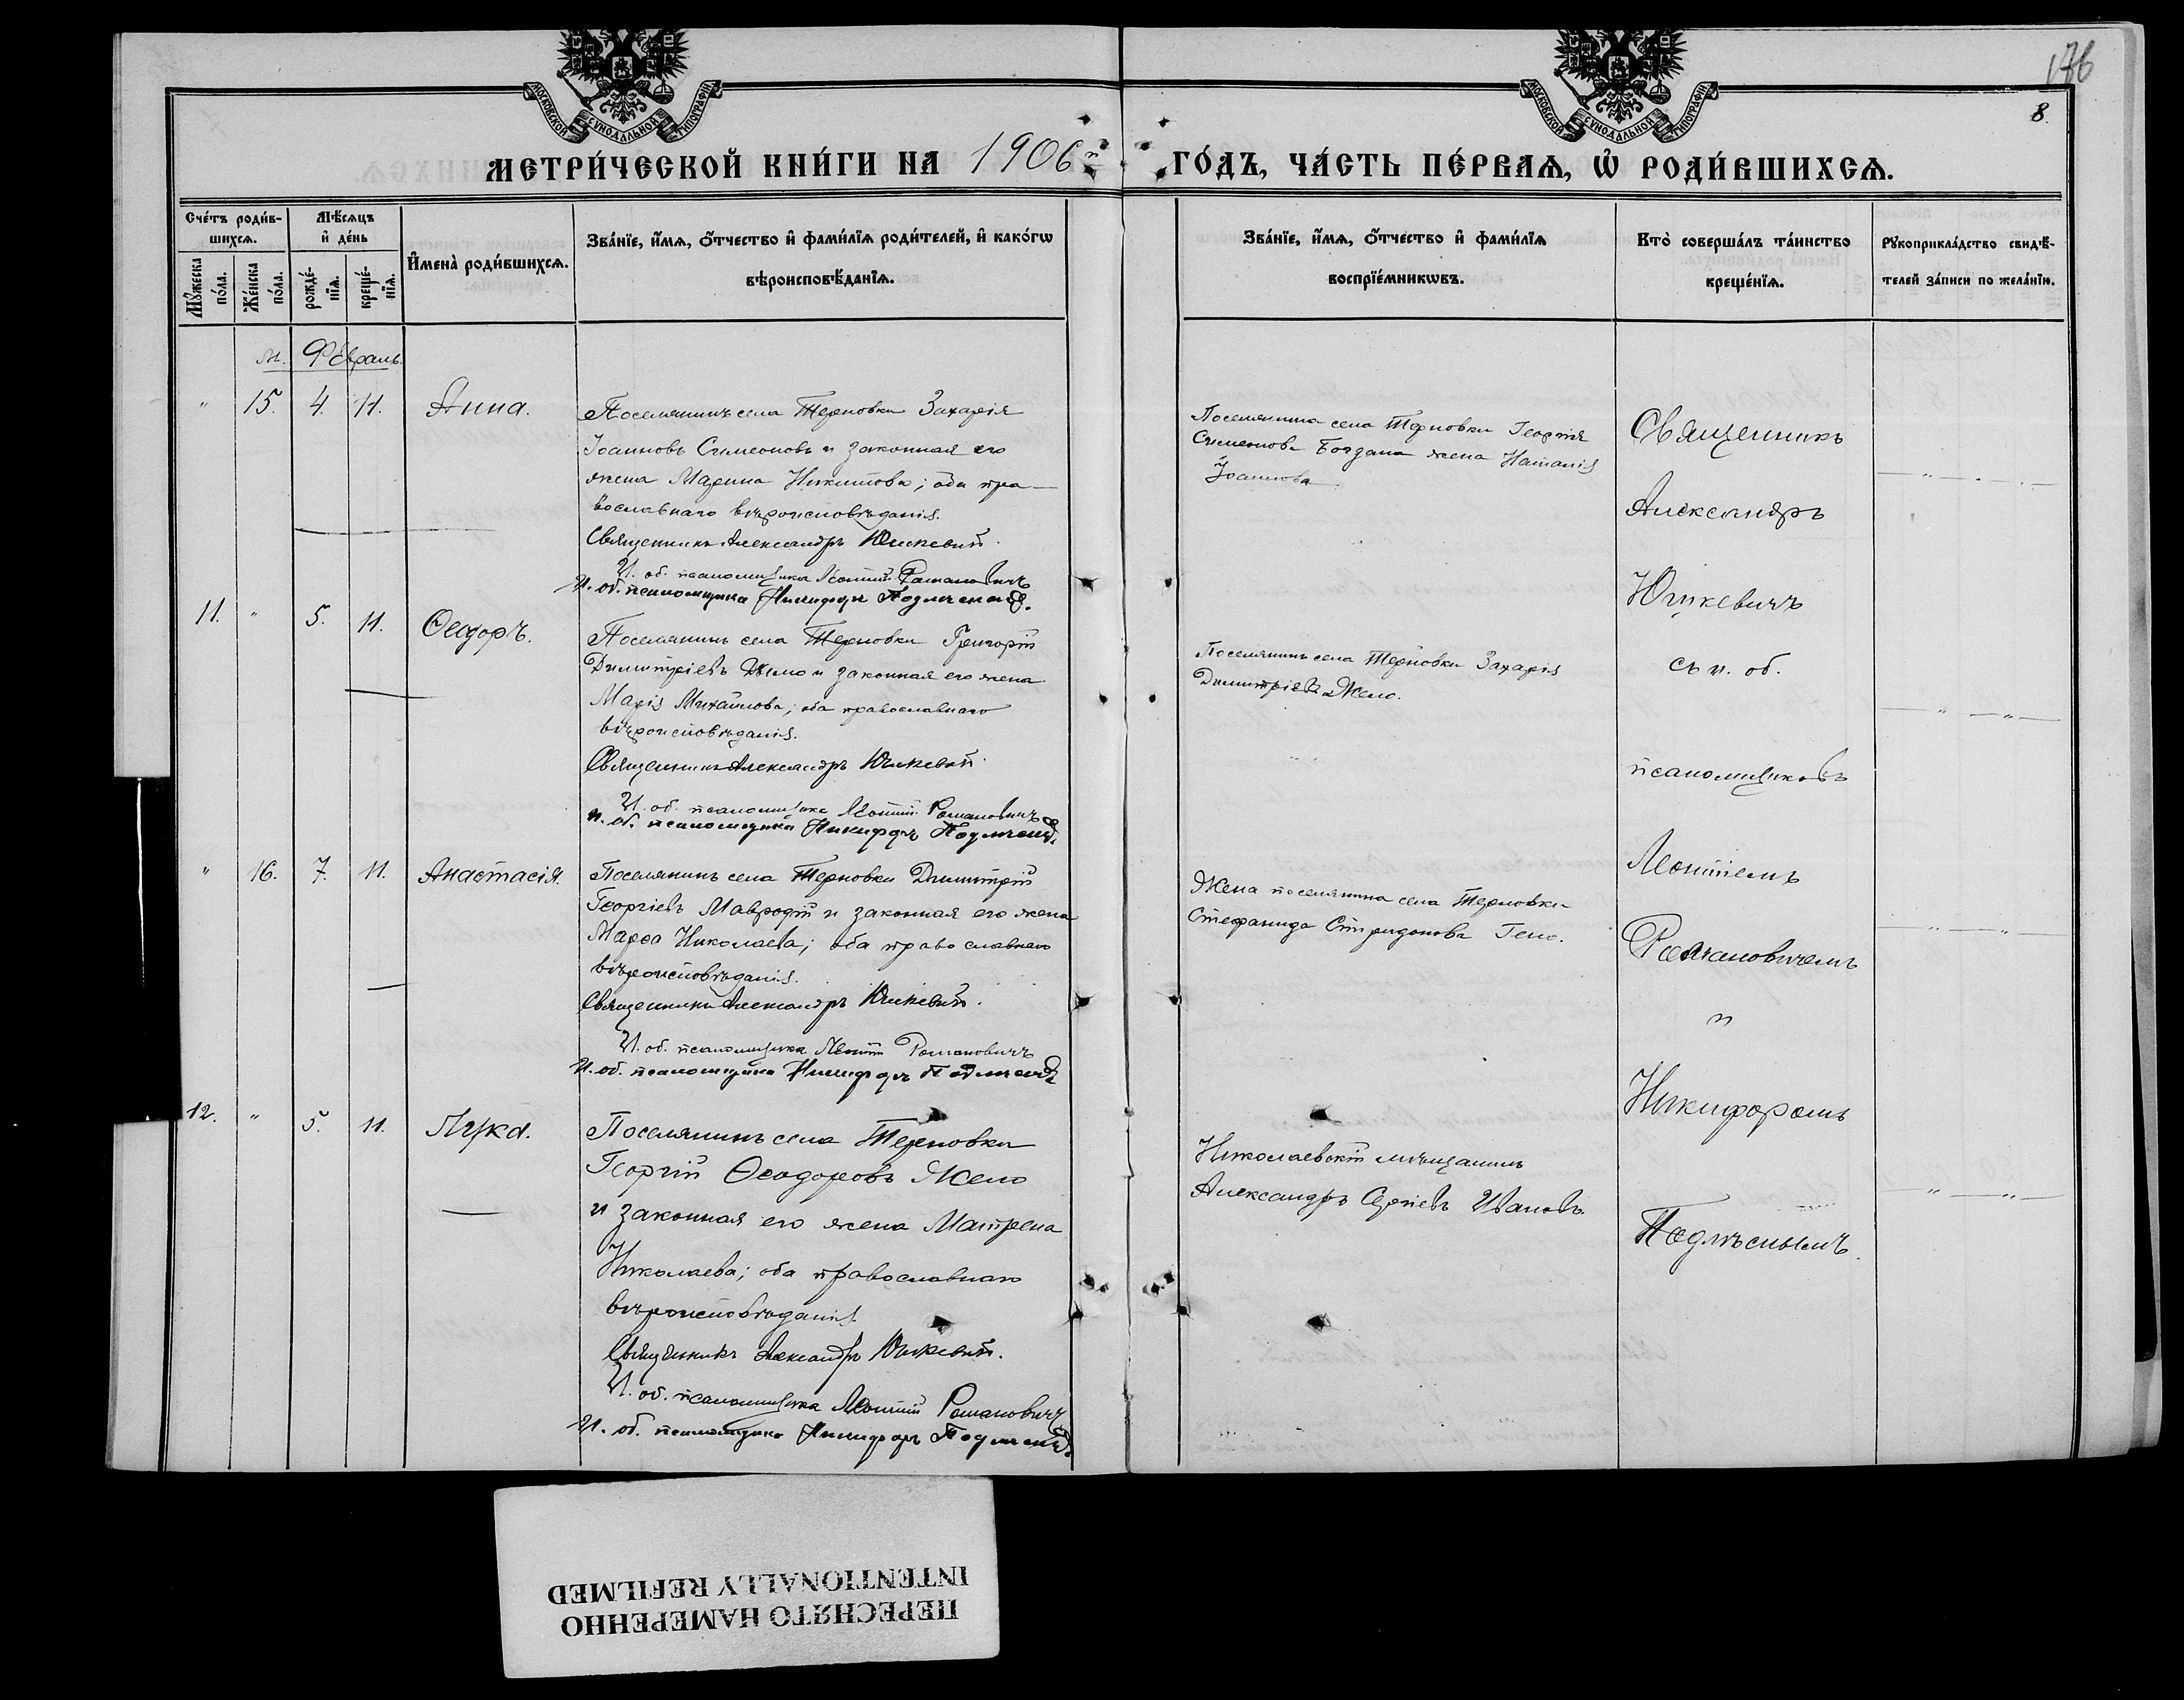 176
8.
МОСКОВСКОЙ СѴНОДАЛЬНОЙ ТИПОГРАФІИ
МОСКОВСКОЙ СѴНОДАЛЬНОЙ ТИПОГРАФІИ
МЕТРИ́ЧЕСКОЙ КНИ́ГИ НА 1906 й ГО́ДЪ, ЧА́СТЬ ПЕ́РВАѦ, Ѡ҆ РОДИ́ВШИХСѦ.
Сче́тъ роди́в-
шихсѧ.
Мꙋ́жеска по́ла.
Же́нска по́ла.
Мѣ́сѧцъ
и҆ де́нь
рожде́-
нїѧ.
креще́-
нїѧ.
И҆мена̀ роди́вшихсѧ.
Зва́нїе, и҆́мѧ, ѻ҆́тчество и҆ фами́лїѧ роди́телей, и҆ како́гѡ
вѣроисповѣ́данїѧ.
Зва́нїе, и҆́мѧ, ѻ҆́тчество и҆ фами́лїѧ
воспрїе́мникѡвъ.
Кто̀ соверша́лъ та́инство
креще́нїѧ.
Рꙋкоприкла́дство свидѣ́-
телей за́писи по жела́нїю.
м. Февраль.
" 15. 4. 11. Анна.
Поселянинъ села Терновки Захарія
Іоанновъ Симеоновъ и законная его
жена Марина Никитова; оба пра-
вославнаго вѣроисповѣданія.
Священникъ Александръ Юшкевич.
И. об. псаломщика Леонтій Романовичъ
И. об. псаломщика Никифоръ Подлѣсный.
Поселянина села Терновки Георгія
Симеонова Богдана жена Наталія
Іоаннова.
11. " 5. 11. Ѳеодоръ.
Поселянинъ села Терновки Григорій
Димитріевъ Желю и законная его жена
Марія Михайлова; оба православнаго
вѣроисповѣданія.
Священникъ Александръ Юшкевич.
И. об. псаломщика Леонтій Романовичъ
И. об. псаломщика Никифоръ Подлѣсный.
Поселянинъ села Терновки Захарія
Димитріевъ Желю.
" 16. 7. 11. Анастасія.
Поселянинъ села Терновки Димитрій
Георгіевъ Мавродій и законная его жена
Марѳа Николаева; оба православнаго
вѣроисповѣданія.
Священникъ Александръ Юшкевич.
И. об. псаломщика Леонтій Романовичъ
И. об. псаломщика Никифоръ Подлѣсный
Жена поселянина села Терновки
Стефанида Спиридонова Геню.
12. " 5. 11. Лука.
Поселянинъ села Терновки
Георгій Ѳеодоровъ Желю
и законная его жена Матрена
Николаева; оба православнаго
вѣроисповѣданія
Священникъ Александръ Юшкевич.
И. об. псаломщика Леонтій Романовичъ
И. об. псаломщика Никифоръ Подлѣсный.
Николаевскій мѣщанинъ
Александръ Сергіевъ Ивановъ.
Священникъ
Александръ
Юшкевичъ
съ и. об.
псаломщиковъ
Леонтіемъ
Романовичемъ
и
Никифоромъ
Подлѣснымъ.
ПЕРЕСНЯТО НАМЕРЕННО
INTENTIONALLY REFILMED